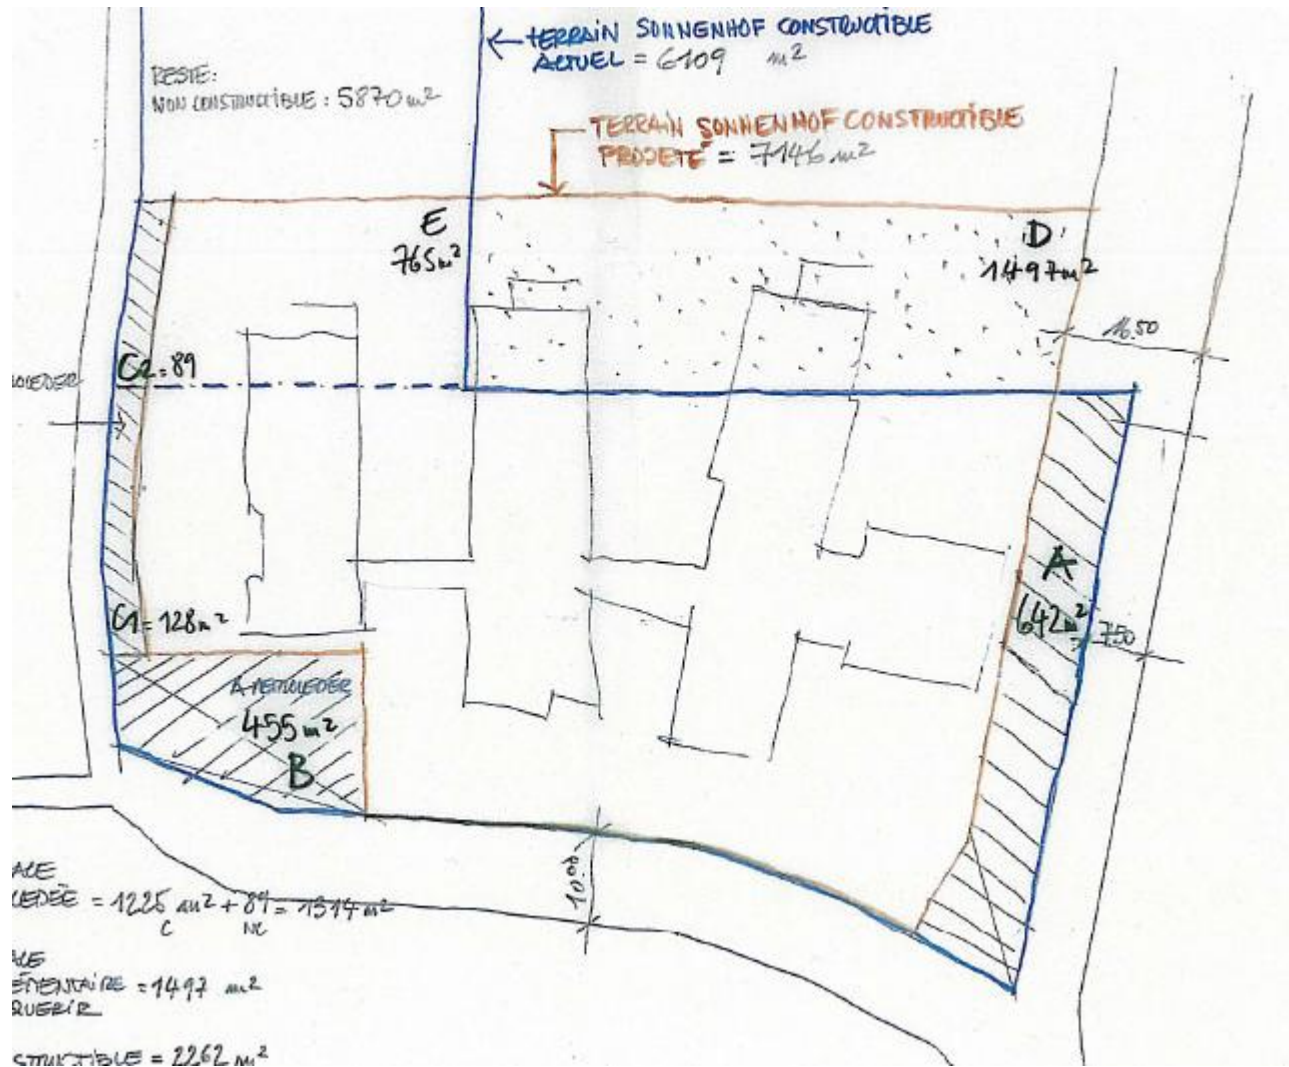 ← TERRAIN SONNENHOF CONSTRUCTIBLE
ACTUEL = 6109 m²
RESTE:
NON CONSTRUCTIBLE : 5870 m²
TERRAIN SONNENHOF CONSTRUCTIBLE
PROJETÉ = 7146 m²
E
765 m²
D
1497 m²
16.50
C2 = 89
A
642 m²
7.50
C1 = 128 m²
A RETROCEDER
455 m²
B
10.00
CEDÉE = 1225 m² + 89 = 1314 m²
C NC
EMENTAIRE = 1497 m²
QUERIR
STRUCTIBLE = 2262 m²